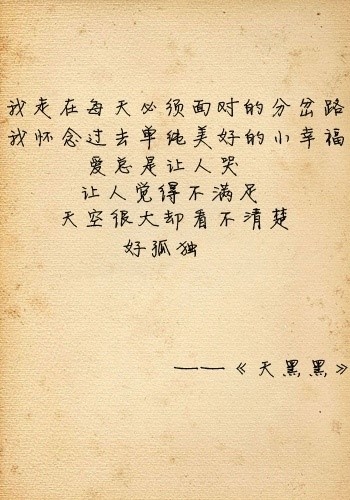 我走在每天必须面对的分岔路
我怀念过去单纯美好的小幸福
爱总是让人哭
让人觉得不满足
天空很大却看不清楚
好孤独
——《天黑黑》